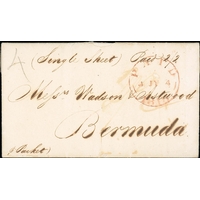 4 (Single Sheet) Paid 2/2
Messrs Wadson &
Bermuda
p Packet)